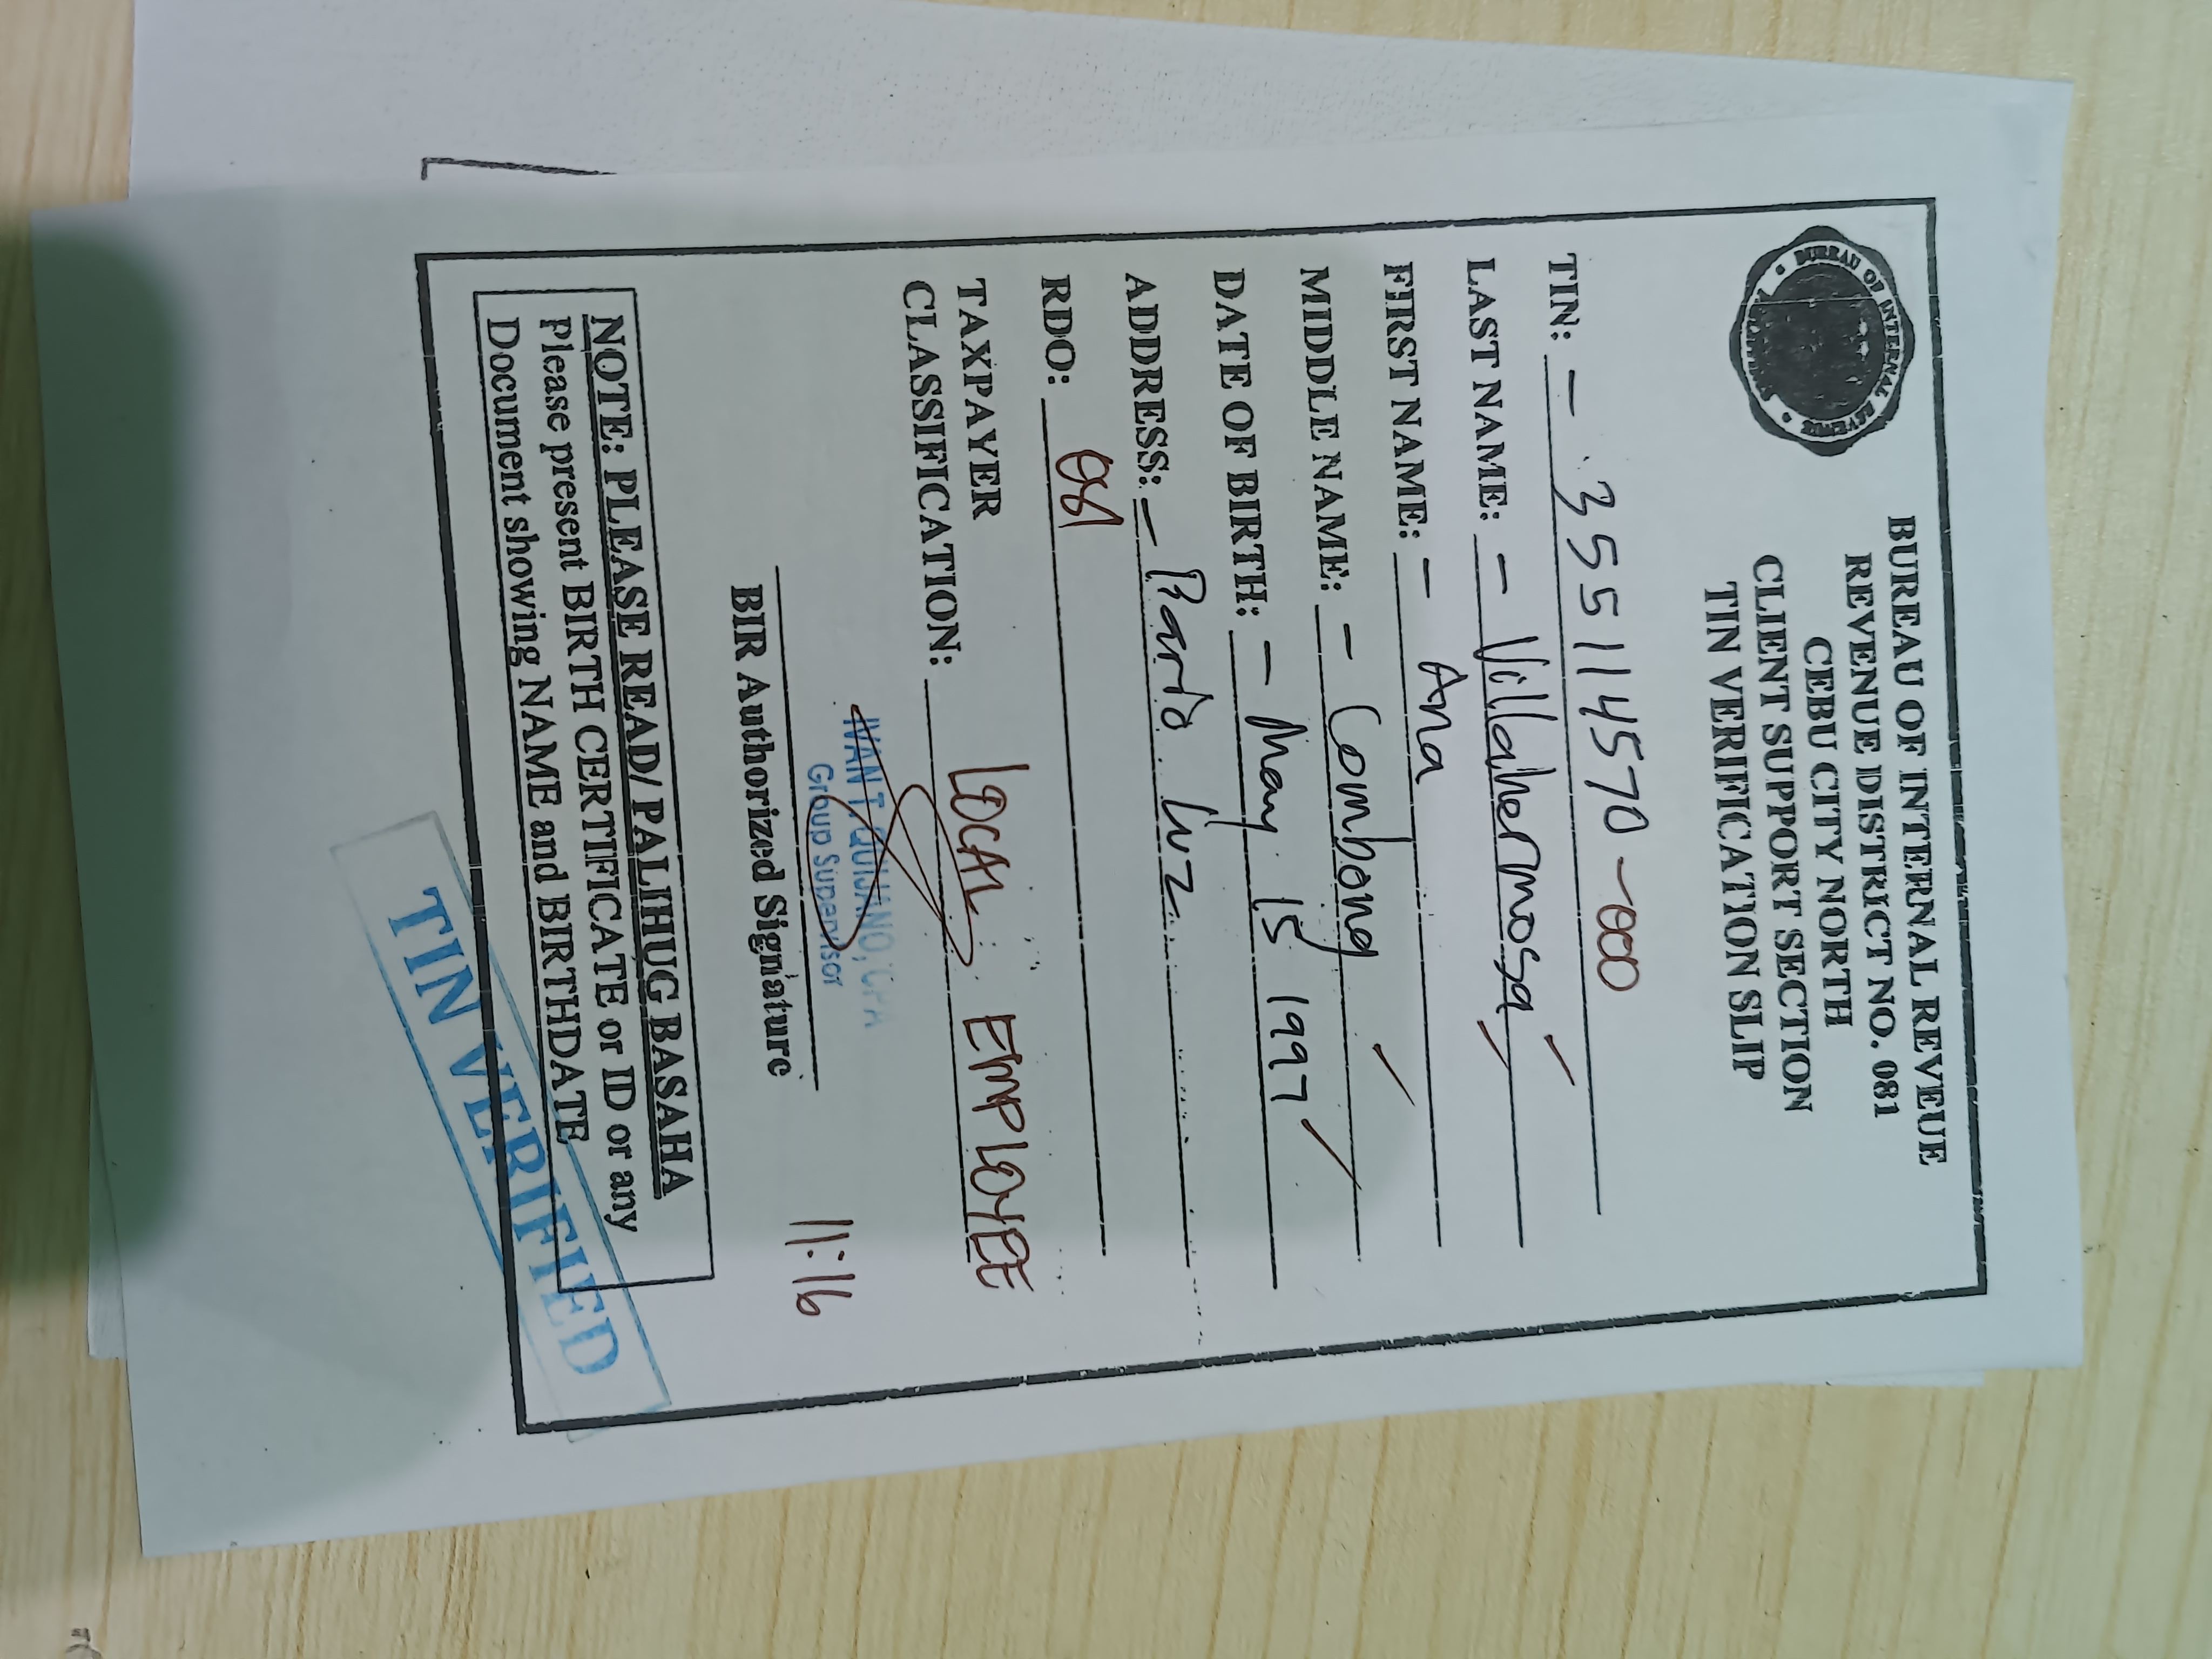 BUREAU OF INTERNAL REVEUE
REVENUE DISTRICT NO. 081
CEBU CITY NORTH
CLIENT SUPPORT SECTION
TIN VERIFICATION SLIP
BUREAU OF INTERNAL REVENUE
TIN: - 355114570-000
LAST NAME: - Villahermosa
FIRST NAME: - Ana
MIDDLE NAME: - Combong
DATE OF BIRTH: - May 15 1997
ADDRESS: - Barrio Luz
RDO: 081
TAXPAYER
CLASSIFICATION: LOCAL EMPLOYEE
IVAN T. QUIJANO, CPA
Group Supervisor
BIR Authorized Signature
11:16
NOTE: PLEASE READ/PALIHUG BASAHA
Please present BIRTH CERTIFICATE or ID or any
Document showing NAME and BIRTHDATE
TIN VERIFIED